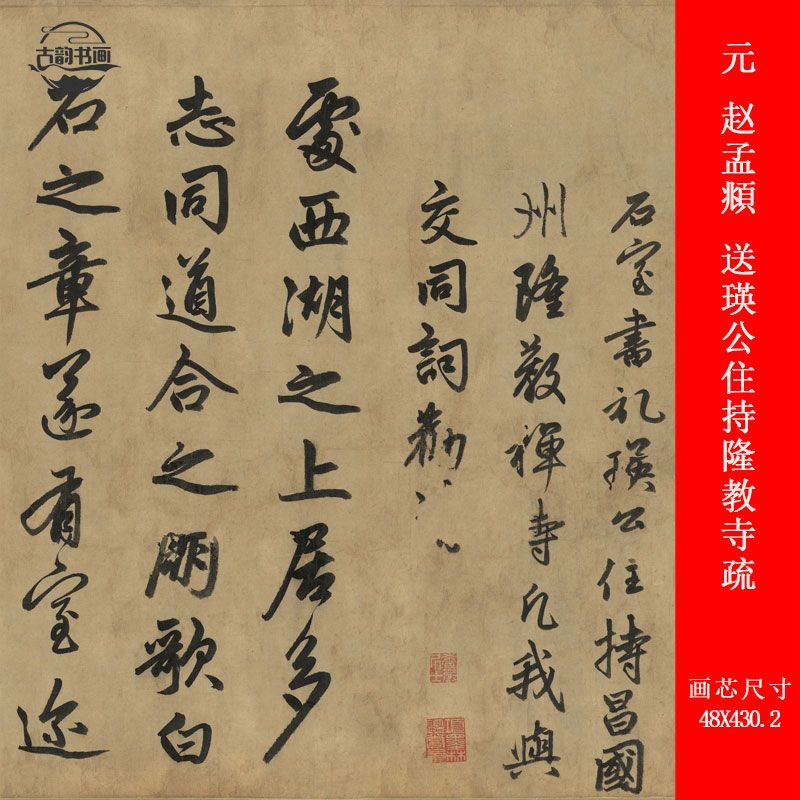 石室書礼瑛公住持昌國
州隆教禪寺凡我與
交同詞勸請
處西湖之上居多
志同道合之朋歌白
石之章遂有室邇
古韵书画
元 赵孟頫 送瑛公住持隆教寺疏
画芯尺寸
48X430.2